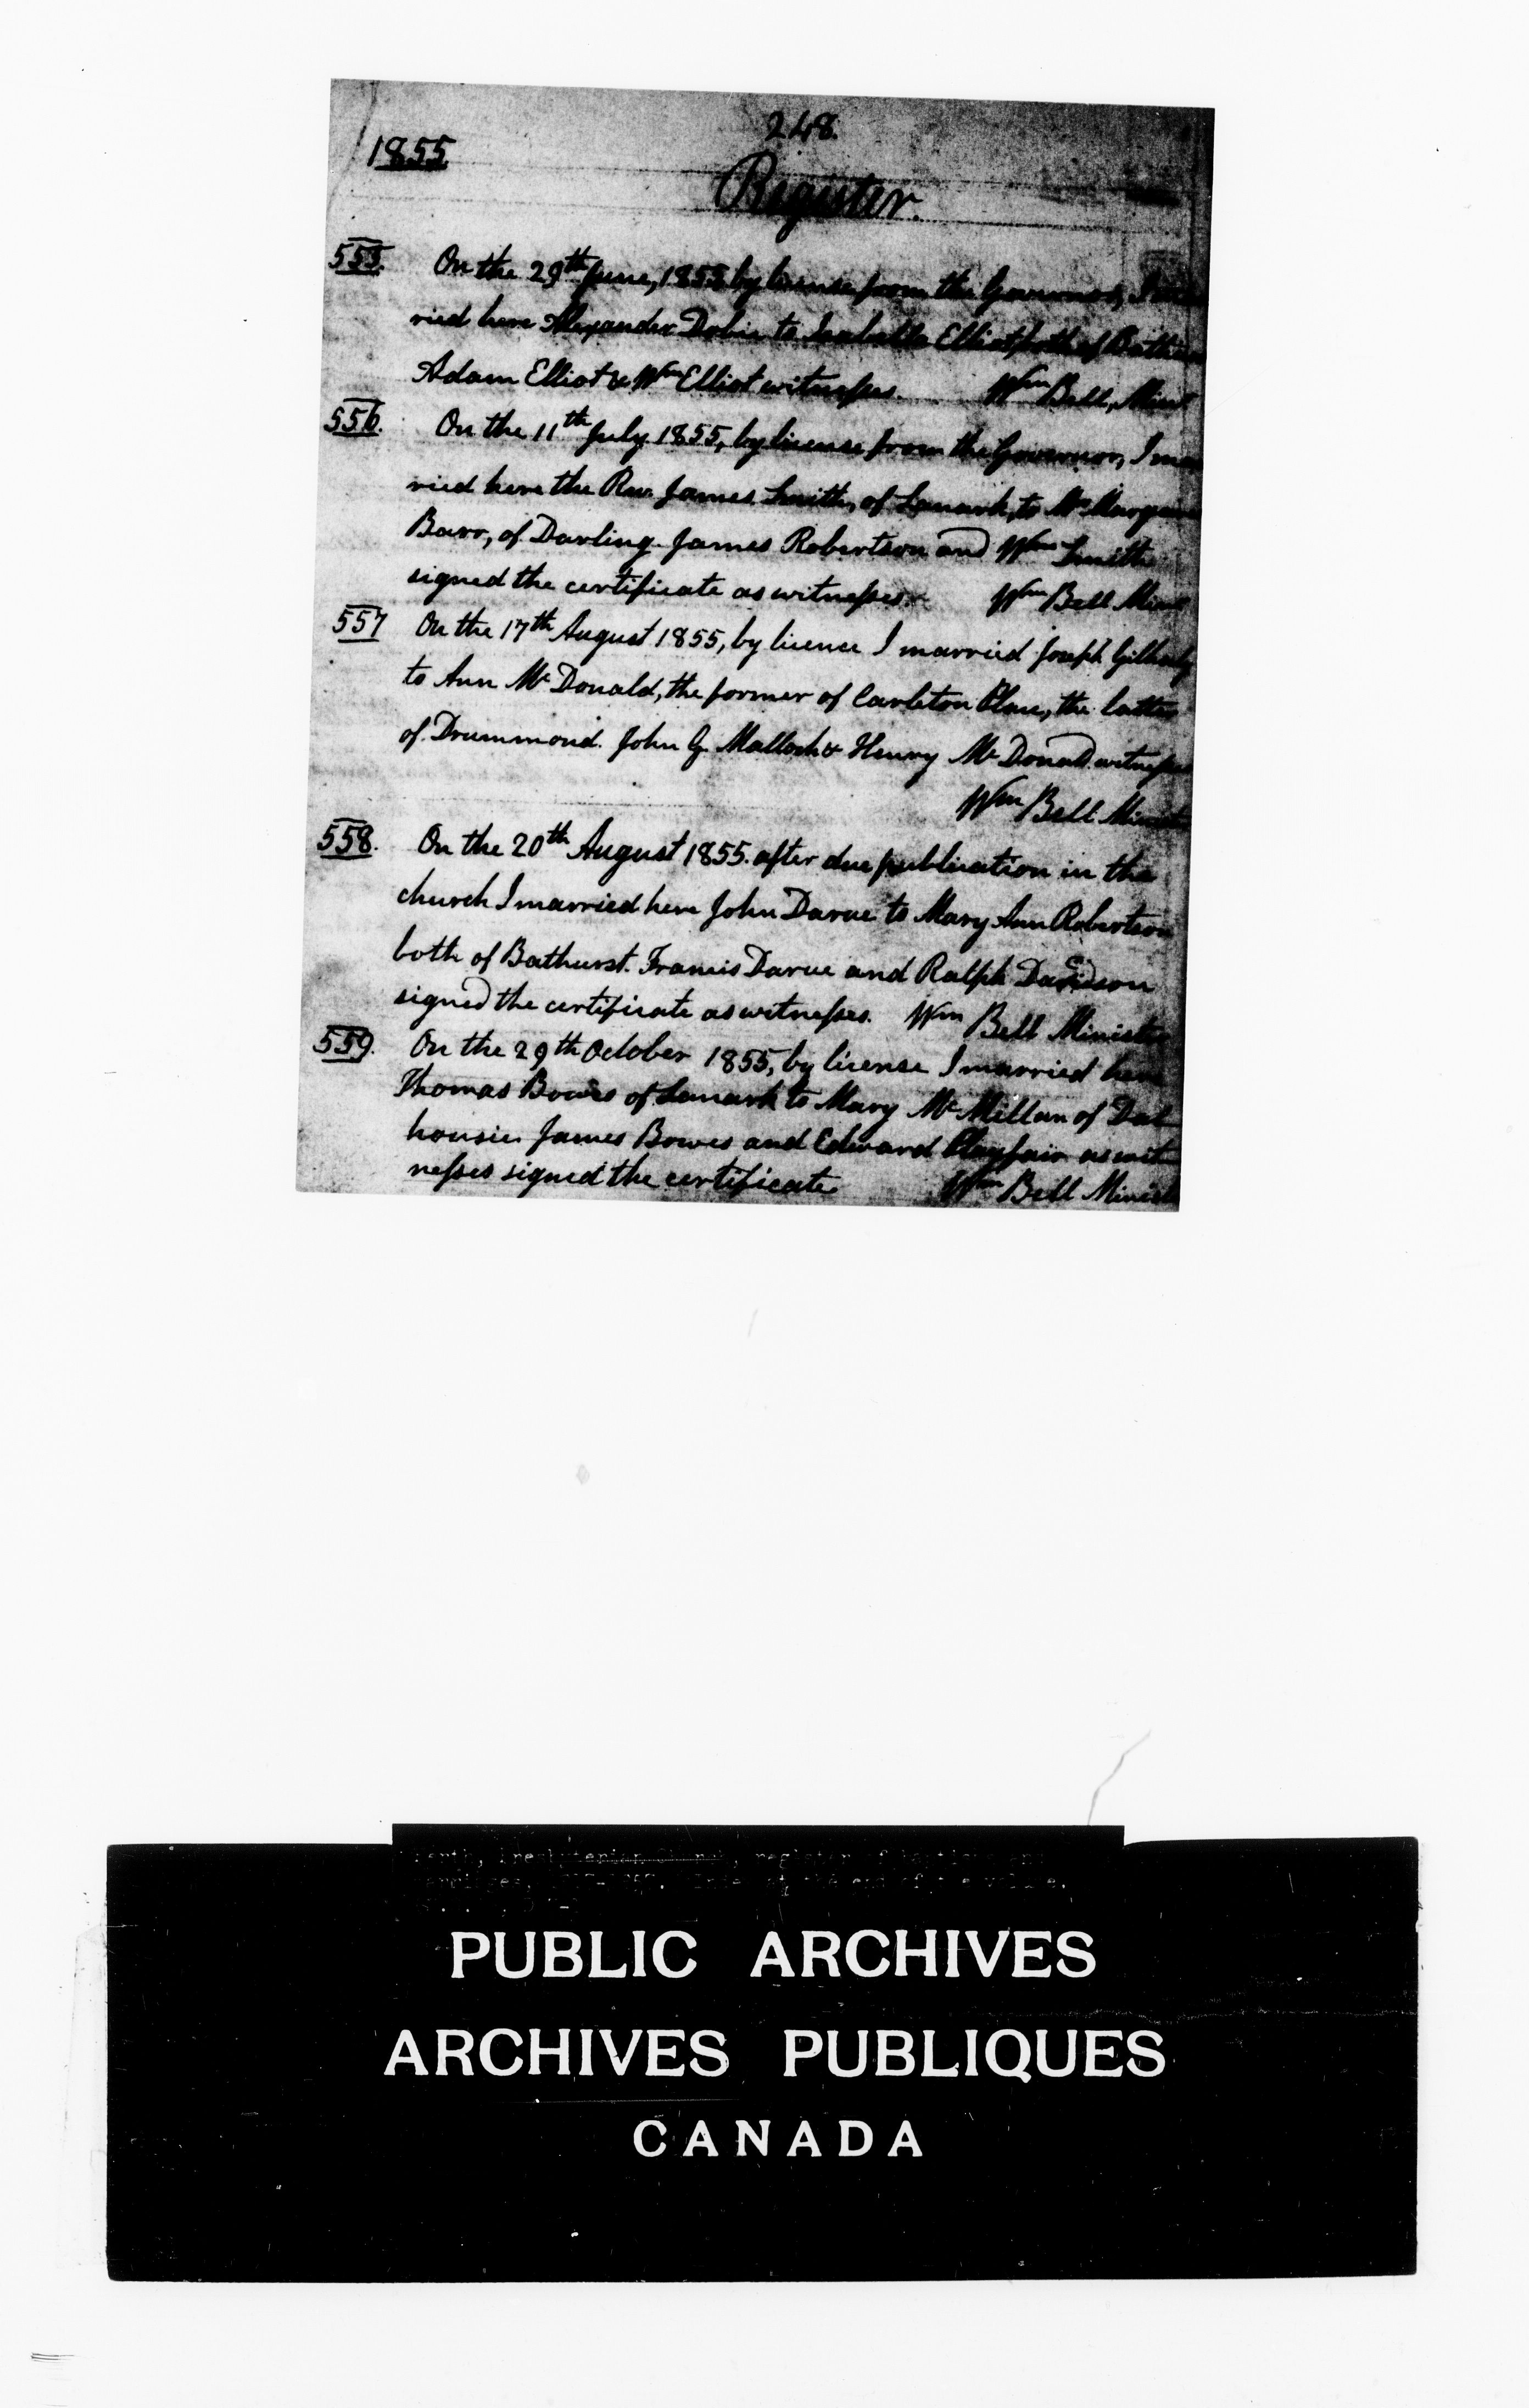 248.
1855
Register.
555. On the 29th June, 1855 by license from the Governor, I
ried here Alexander Dobie to Isabella Elliot both of
Adam Elliot & Wm Elliot witnesses. Wm Bell, Minst
556. On the 11th July 1855, by license from the Governor, I mar
ried here the Rev. James Smith, of Lanark, to
Barr, of Darling. James Robertson and Wm Smith
signed the certificate as witnesses. Wm Bell Minst
557 On the 17th August 1855, by licence I married Joseph
to Ann McDonald, the former of Carleton Place, the latter
of Drummond. John G. Malloch & Henry McDonald witnesses
Wm Bell Minister
558. On the 20th August 1855. after due publication in the
church I married here John Darue to Mary Ann Robertson
both of Bathurst. Francis Darue and Ralph Davidson
signed the certificate as witnesses. Wm Bell Minister
559. On the 29th October 1855, by license I married here
Thomas Bowes of Lanark to Mary McMillan of Dal
housie. James Bowes and Edward Playfair as wit
nesses signed the certificate Wm Bell Minist
PUBLIC ARCHIVES
ARCHIVES PUBLIQUES
CANADA